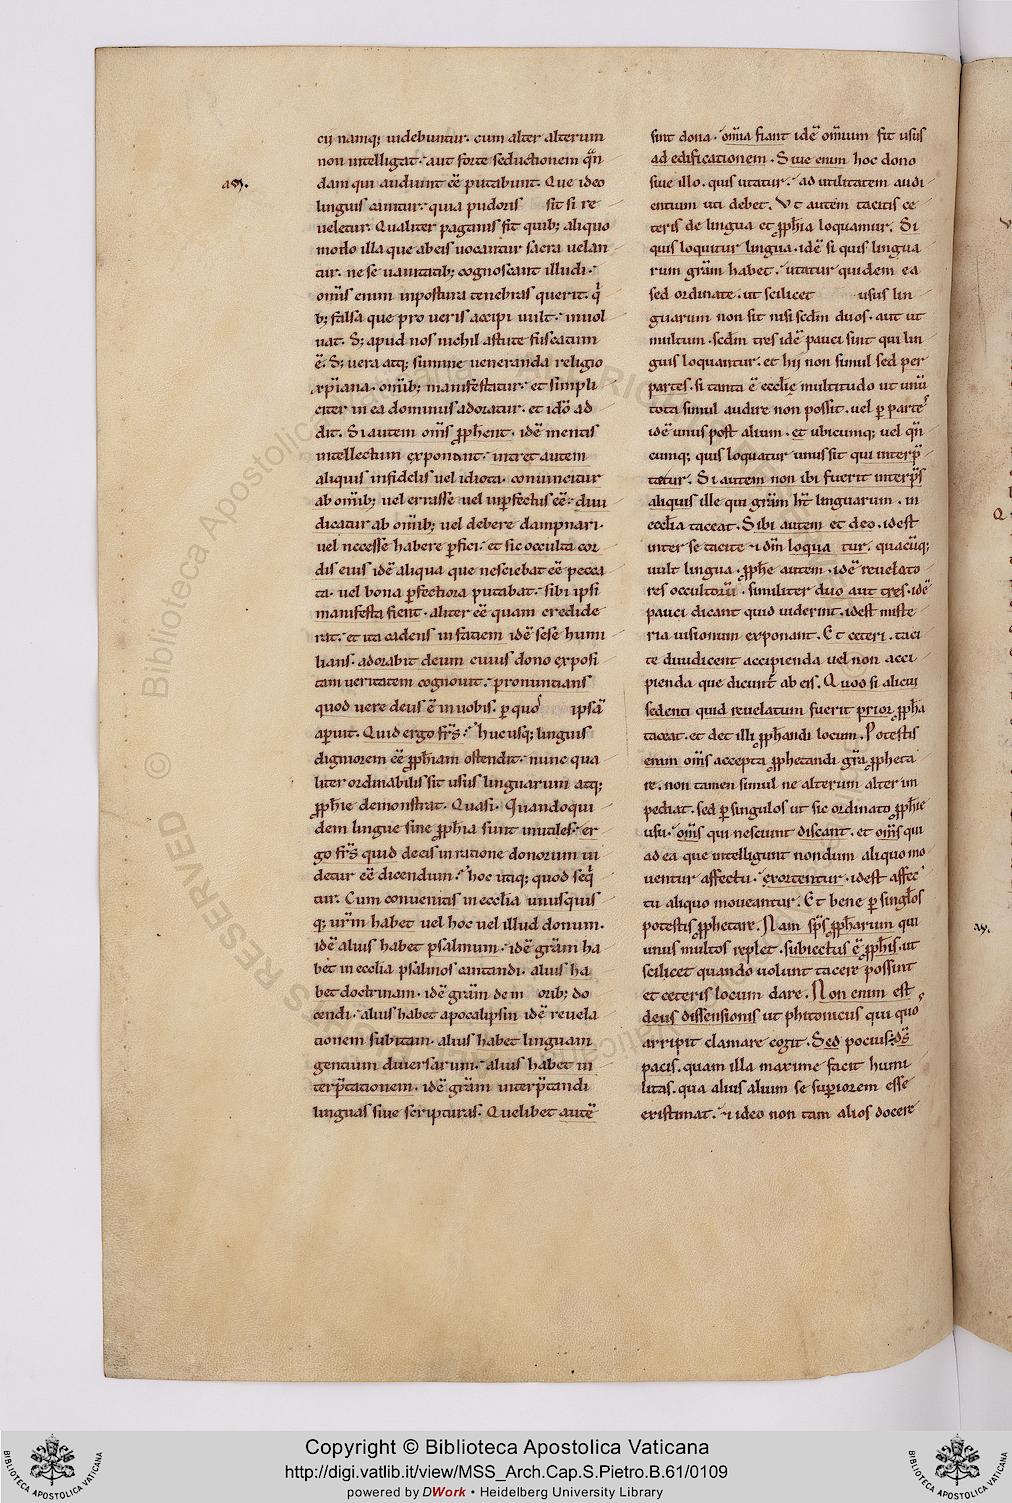 cii namq; uidebuntur. cum alter alterum
non intelligat. aut forte seductionem qn̄
dam qui audiunt eē putabunt. Que ideo
linguis canitur. quia pudoris sit si re
ueletur. Qualiter paganis fit quib; aliquo
modo illa que ab eis uocantur sacra uelan
tur. ne se uanitatib; cognoscant illudi.
om̄is enim inpostura tenebras querit. q̍
b; falsa que pro ueris accipi uult. inuol
uat. S; apud nos nichil astute fuscatum
ē. S; uera atq; summe ueneranda religio
xp̄iana. om̄ib; manifestatur. et simpli
citer in ea dominus adoratur. et idō ad
dit. Si autem om̄s ꝓph̄ent. idē mentis
intellectum exponant. intret autem
aliquis infidelis uel idiota. conuincitur
ab om̄ib; uel errasse uel inꝑfectus eē. diiu
dicatur ab om̄ib; uel debere dampnari.
uel necesse habere ꝑfici. et sic occulta cor
dis eius idē aliqua que nesciebat eē pecca
ta. uel bona ꝑfectiora putabat. sibi ipsi
manifesta fient. aliter eē quam credide
rat. et ita cadens in faciem idē sese humi
lians. adorabit deum cuius dono exposi
tam ueritatem cognouit. pronuntians
quod uere deus ē in uobis. ꝑ quos ipsā
aperuit. Quid ergo fr̄s. huc usq; linguis
digniorem eē ꝓph̄iam ostendit. nunc qua
liter ordinabilis sit usus linguarum atq;
ꝓph̄ie demonstrat. Quasi. Quandoqui
dem lingue sine ꝓph̄ia sunt inutiles. er
go fr̄s quid de eis in ratione donorum ui
detur eē dicendum. hoc utiq; quod seq̄
tur. Cum conuenitis in ecclīa unusquis
q; ur̄m habet uel hoc uel illud donum.
idē alius habet psalmum. idē grām ha
bet in ecclīa psalmos cantandi. alius ha
bet doctrinam. idē grām de m orib; do
cendi. alius habet apocalipsin idē reuela
tionem subitam. alius habet linguam
gentium diuersarum. alius habet in
terp̄tationem. idē grām interp̄tandi
linguas siue scripturas. Quelibet autē
sint dona. om̄ia fiant idē om̄ium fit usus
ad edificationem. Siue enim hoc dono
siue illo. quis utatur. ad utilitatem audi
entium uti debet. Vt autem tacitis ce
teris de lingua et ꝓph̄ia loquamur. Si
quis loquitur lingua. idē si quis lingua
rum grām habet. utatur quidem ea
sed ordinate. ut scilicet usus lin
guarum non sit nisi scdm̄ duos. aut ut
multum. scdm̄ tres idē pauci sint qui lin
guis loquantur. et hii non simul sed per
partes. si tanta ē ecclīe multitudo ut unū
tota simul audire non possit. uel ꝑ partes
idē unus post alium. et ubicumq; uel qn̄
cumq; quis loquatur unus sit qui interp̄
tatur. Si autem non ibi fuerit interp̄s
aliquis ille qui grām hēt linguarum. in
ecclīa taceat. Sibi autem et deo. idest
inter se tacite et dm̄ loqua tur. quacūq;
uult lingua. ꝓph̄e autem. idē reuelato
res occultorū. similiter duo aut tres. idē
pauci dicant quid uiderint. idest miste
ria uisionum exponant. Et ceteri. taci
te diiudicent accipienda uel non acci
pienda que dicunt̄ ab eis. Quod si alicui
sedenti quid reuelatum fuerit prior ꝓph̄a
taceat. et det illi ꝓph̄andi locum. Potestis
enim om̄s accepta ꝓphetandi grā ꝓpheta
re. non tamen simul ne alterum alter im
pediat. sed ꝑ singulos ut sic ordinato ꝓph̄ie
usu. om̄s qui nesciunt discant. et om̄s qui
ad ea que intelligunt nondum aliquo mo
uentur affectu. exortentur. idest affec
tu aliquo moueantur. Et bene ꝑ singlos
potestis ꝓphetare. Nam sp̄s ꝓph̄arum qui
unus multos replet. subiectus ē ꝓph̄is. ut
scilicet quando uolunt tacere possint
et ceteris locum dare. Non enim est
deus dissensionis ut phitonicus qui quos
arripit clamare cogit. Sed pocius. ds̄
pacis. quam illa maxime facit humi
litas. qua alius alium se suꝑiorem esse
existimat. et ideo non tam alios docere
Copyright © Biblioteca Apostolica Vaticana
http://digi.vatlib.it/view/MSS_Arch.Cap.S.Pietro.B.61/0109
powered by DWork • Heidelberg University Library